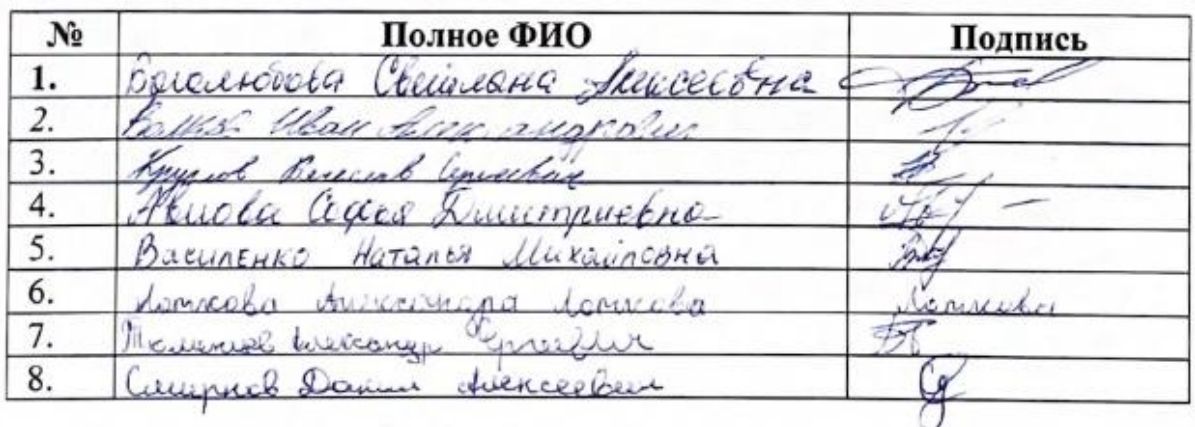 № Полное ФИО Подпись
1. Боголюбова Светлана Алексеевна
2. Волков Иван Александрович
3. Круглов Вячеслав Сергеевич
4. Софья Дмитриевна
5. Василенко Наталья Михайловна
6. Лоткова Александра Лоткова Лоткова
7. Александр Сергеевич
8. Смирнов Данил Алексеевич